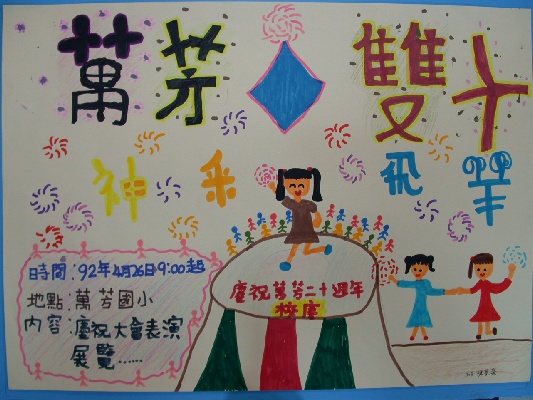 萬芳 雙十
神采飛羊
時間:92年4月26日9:00起
地點:萬芳國小
內容:慶祝大會表演
展覽......
慶祝萬芳二十週年
校慶